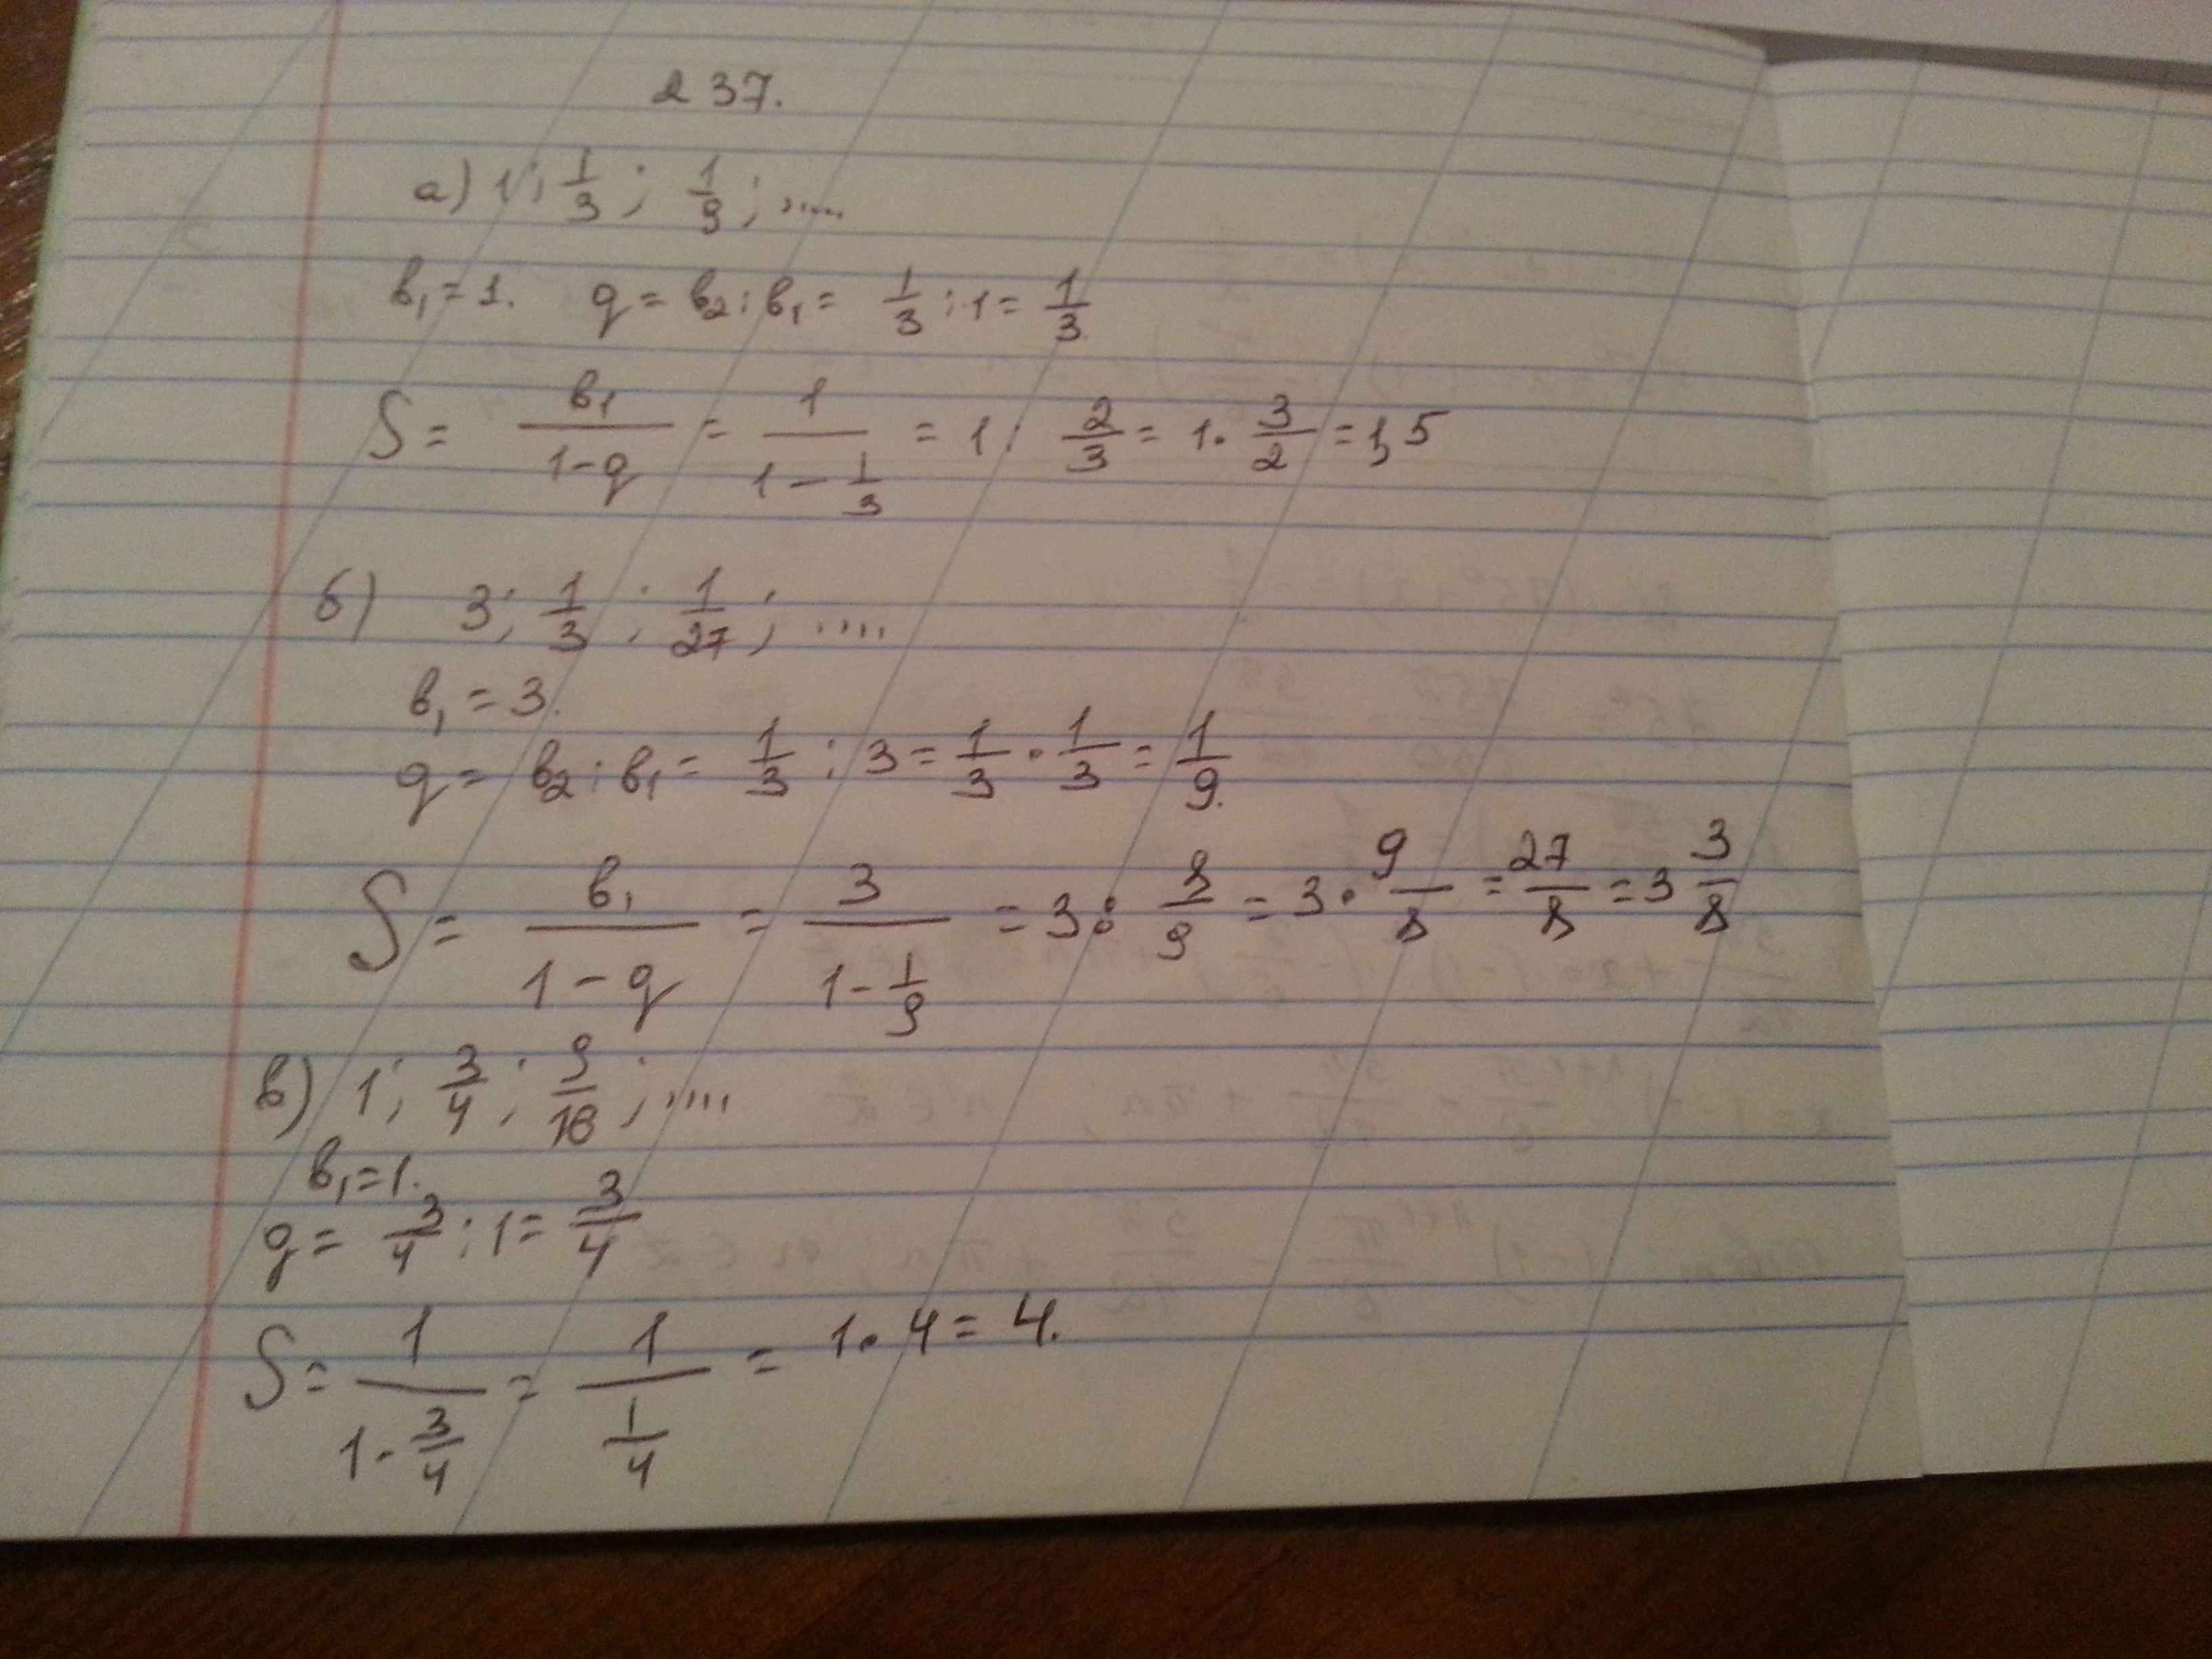 237.
а) 1; 1/3; 1/9; .....
b₁ = 1. q = b₂ : b₁ = 1/3 : 1 = 1/3
S = b₁/(1-q) = 1/(1 - 1/3) = 1 : 2/3 = 1 · 3/2 = 1,5
б) 3; 1/3; 1/27; ....
b₁ = 3.
q = b₂ : b₁ = 1/3 : 3 = 1/3 · 1/3 = 1/9.
S = b₁/(1-q) = 3/(1 - 1/9) = 3 : 8/9 = 3 · 9/8 = 27/8 = 3 3/8
в) 1; 3/4; 9/16; ....
b₁ = 1.
q = 3/4 : 1 = 3/4
S = 1/(1 - 3/4) = 1/(1/4) = 1 · 4 = 4.